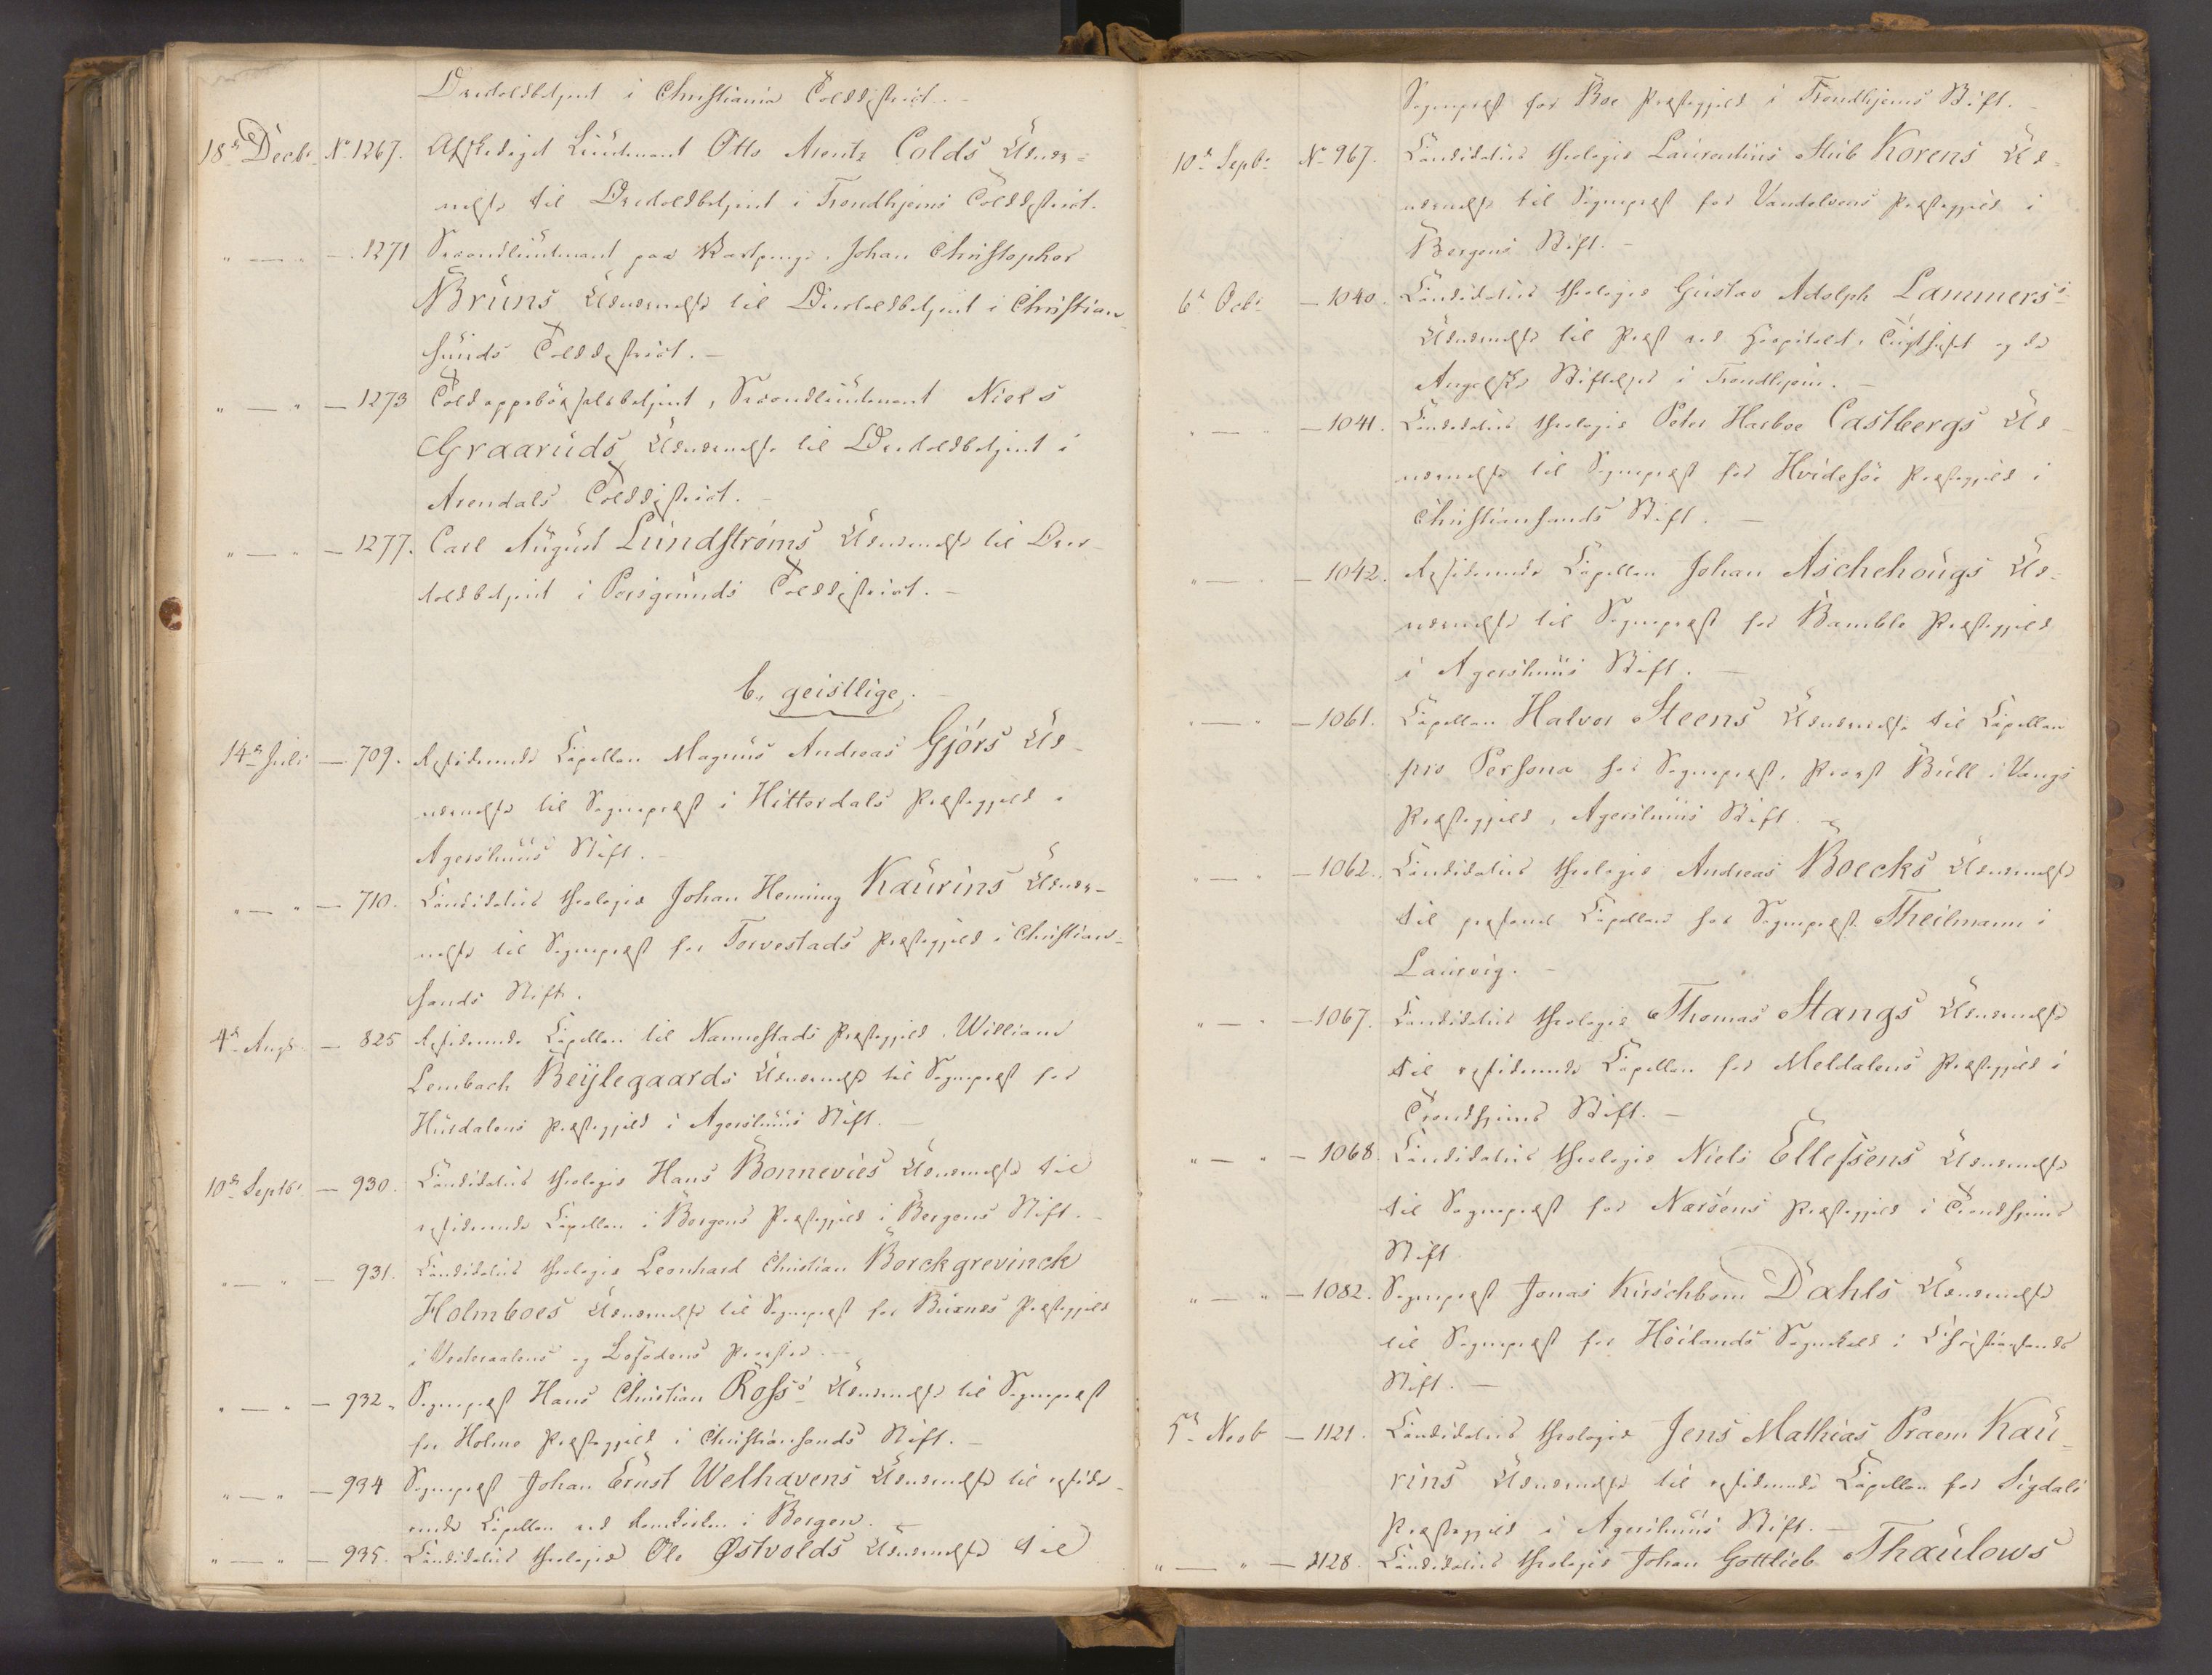 Overtoldbetjent i Christiania Tolddistrict. -
18de Decbr. No 1267. Afskediget Lieutenant Otto Arentz Colds Udnæv-
nelse til Overtoldbetjent i Trondhjems Tolddistrict.
" — " — 1271 Secondlieutenant paa Vartpenge, Johan Christopher
Bruns Udnævnelse til Overtoldbetjent i Christian-
sunds Tolddistrict. —
" — " — 1273 Toldoppebørselsbetjent, Secondlieutenant Niels
Graaruds Udnævnelse til Overtoldbetjent i
Arendals Tolddistrict. -
" — " — 1277. Carl August Lundstrøms Udnævnelse til Over-
toldbetjent i Porsgrunds Tolddistrict. -
b, geistlige. -
14de Juli — 709. Residerende Capellan Magnus Andreas Gjørs Ud-
nævnelse til Sognepræst i Hitterdals Præstegjeld i
Agershuus Stift. -
" — " — 710. Candidatus theologiæ Johan Heming Kaurins Udnæv-
nelse til Sognepræst for Torvestads Præstegjeld i Christian-
sands Stift.
4de Aug. — 825 Residerende Capellan til Nannestads Præstegjeld, William
Lembach Beylegaards Udnævnelse til Sognepræst for
Hurdalens Præstegjeld i Agershuus Stift. -
10de Septbr — 930. Candidatus theologiæ Hans Bonnevies Udnævnelse til
residerende Capellan i Borgens Præstegjeld i Bergens Stift. -
" — " — 931. Candidatus theologiæ Leonhard Christian Borckgrevinck
Holmboes Udnævnelse til Sognepræst for Buxnes Præstegjeld
i Vesteraalens og Lofodens Provsti. -
" — " — 932. Sognepræst Hans Christian Ross's Udnævnelse til Sognepræst
for Holme Præstegjeld i Christiansands Stift. -
" — " — 934 Sognepræst Johan Ernst Welhavens Udnævnelse til reside-
rende Capellan ved Domkirken i Bergen. -
" — " — 935. Candidatus theologiæ Ole Østvolds Udnævnelse til
Sognepræst for Boe Præstegjeld i Trondhjems Stift. -
10de Septbr No 967. Candidatus theologiæ Laurentius Stub Korens Ud-
nævnelse til Sognepræst for Vandelvens Præstegjeld i
Bergens Stift. -
6te Octbr — 1040. Candidatus theologiæ Gustav Adolph Lammers's
Udnævnelse til Præst ved Hospitalet, Tugthuset og de
Angelske Stiftelser i Trondhjem. -
" — " — 1041. Candidatus theologiæ Peter Harboe Castbergs Ud-
nævnelse til Sognepræst for Hvidesøe Præstegjeld i
Christiansands Stift. —
" — — 1042. Residerende Capellan Johan Aschehougs Ud-
nævnelse til Sognepræst for Bamble Præstegjeld
i Agershuus Stift. —
" — " — 1061. Capellan Halvor Steens Udnævnelse til Capellan
pro Persona hos Sognepræst, Provst Bull i Vangs
Præstegjeld, Agershuus Stift. -
" — " — 1062. Candidatus theologiæ Andreas Boecks Udnævnelse
til personel Capellan hos Sognepræst Theilmann i
Laurvig. -
" — " — 1067. Candidatus theologiæ Thomas Stangs Udnævnelse
til residerende Capellan for Meldalens Præstegjeld i
Trondhjems Stift. -
" — " — 1068. Candidatus theologiæ Niels Ellefsens Udnævnelse
til Sognepræst for Nærøens Præstegjeld i Trondhjems
Stift
" — " — 1082. Sognepræst Jonas Kirschbom Dahls Udnævnelse
til Sognepræst for Høilands Sognekald i Christiansands
Stift. —
5te Novb — 1121. Candidatus theologiæ Jens Mathias Praem Kau-
rins Udnævnelse til residerende Capellan for Sigdals
Præstegjeld i Agershuus Stift. -
" — " — 1128. Candidatus theologiæ Johan Gottlieb Thaulows